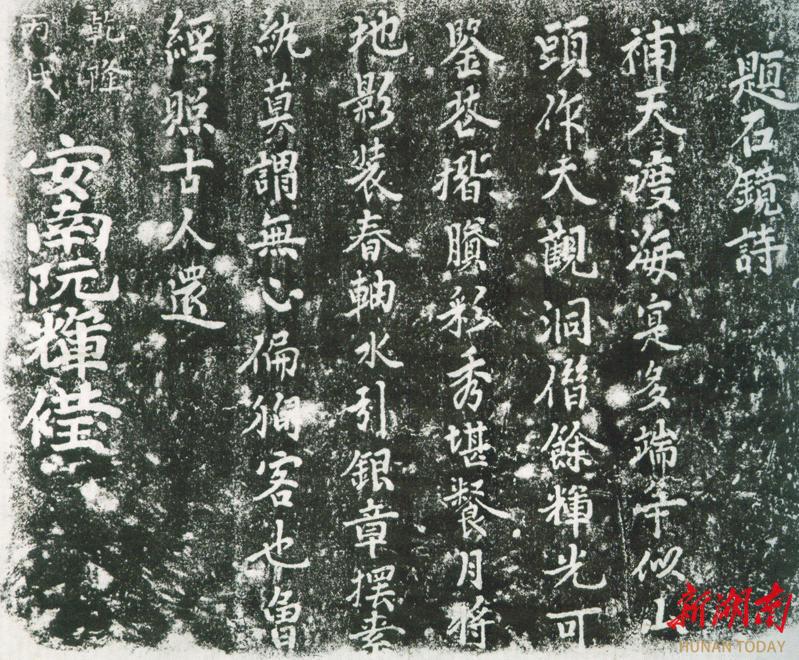 題石鏡詩
補天渡海寔多端争似山
頭作大觀洞借餘輝光可
鑒苔揩賸彩秀堪餐月將
地影装春軸水引銀章擺素
紈莫謂無心偏徇客也曾
經照古人還
乾隆
丙戌
安南阮輝𠐓
新湖南
HUNAN TODAY